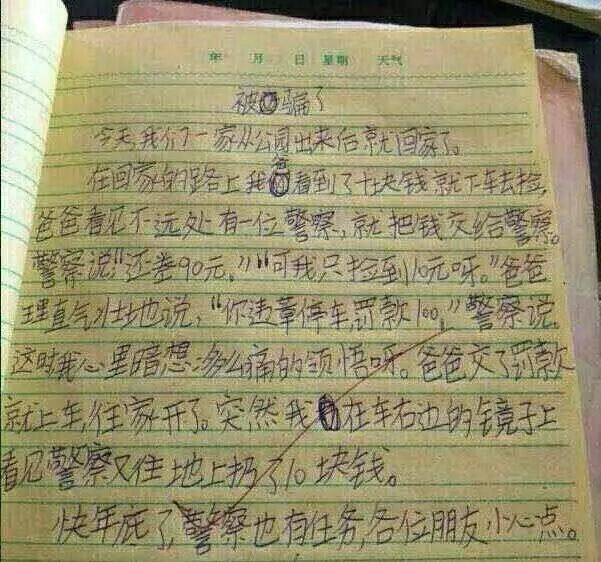 年 月 日 星期 天气
被骗了
今天我们一家从公园出来后就回家了。
在回家的路上我爸看到了十块钱就下车去捡,
爸爸看见不远处有一位警察,就把钱交给警察。
警察说“还差90元,”“可我只捡到10元呀。”爸爸
理直气壮地说,“你违章停车,罚款100,”警察说。
这时我心里暗想:多么痛的领悟呀。爸爸交了罚款
就上车,往家开了。突然我在车右边的镜子上
看见警察又往地上扔了10块钱。
快年底了,警察也有任务,各位朋友小心点。